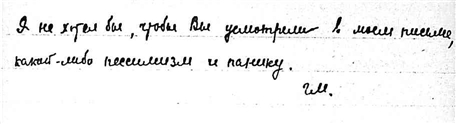 Я не хотел бы, чтобы Вы усмотрели в моем письме,
какой-либо пессимизм и панику.
ГМ.